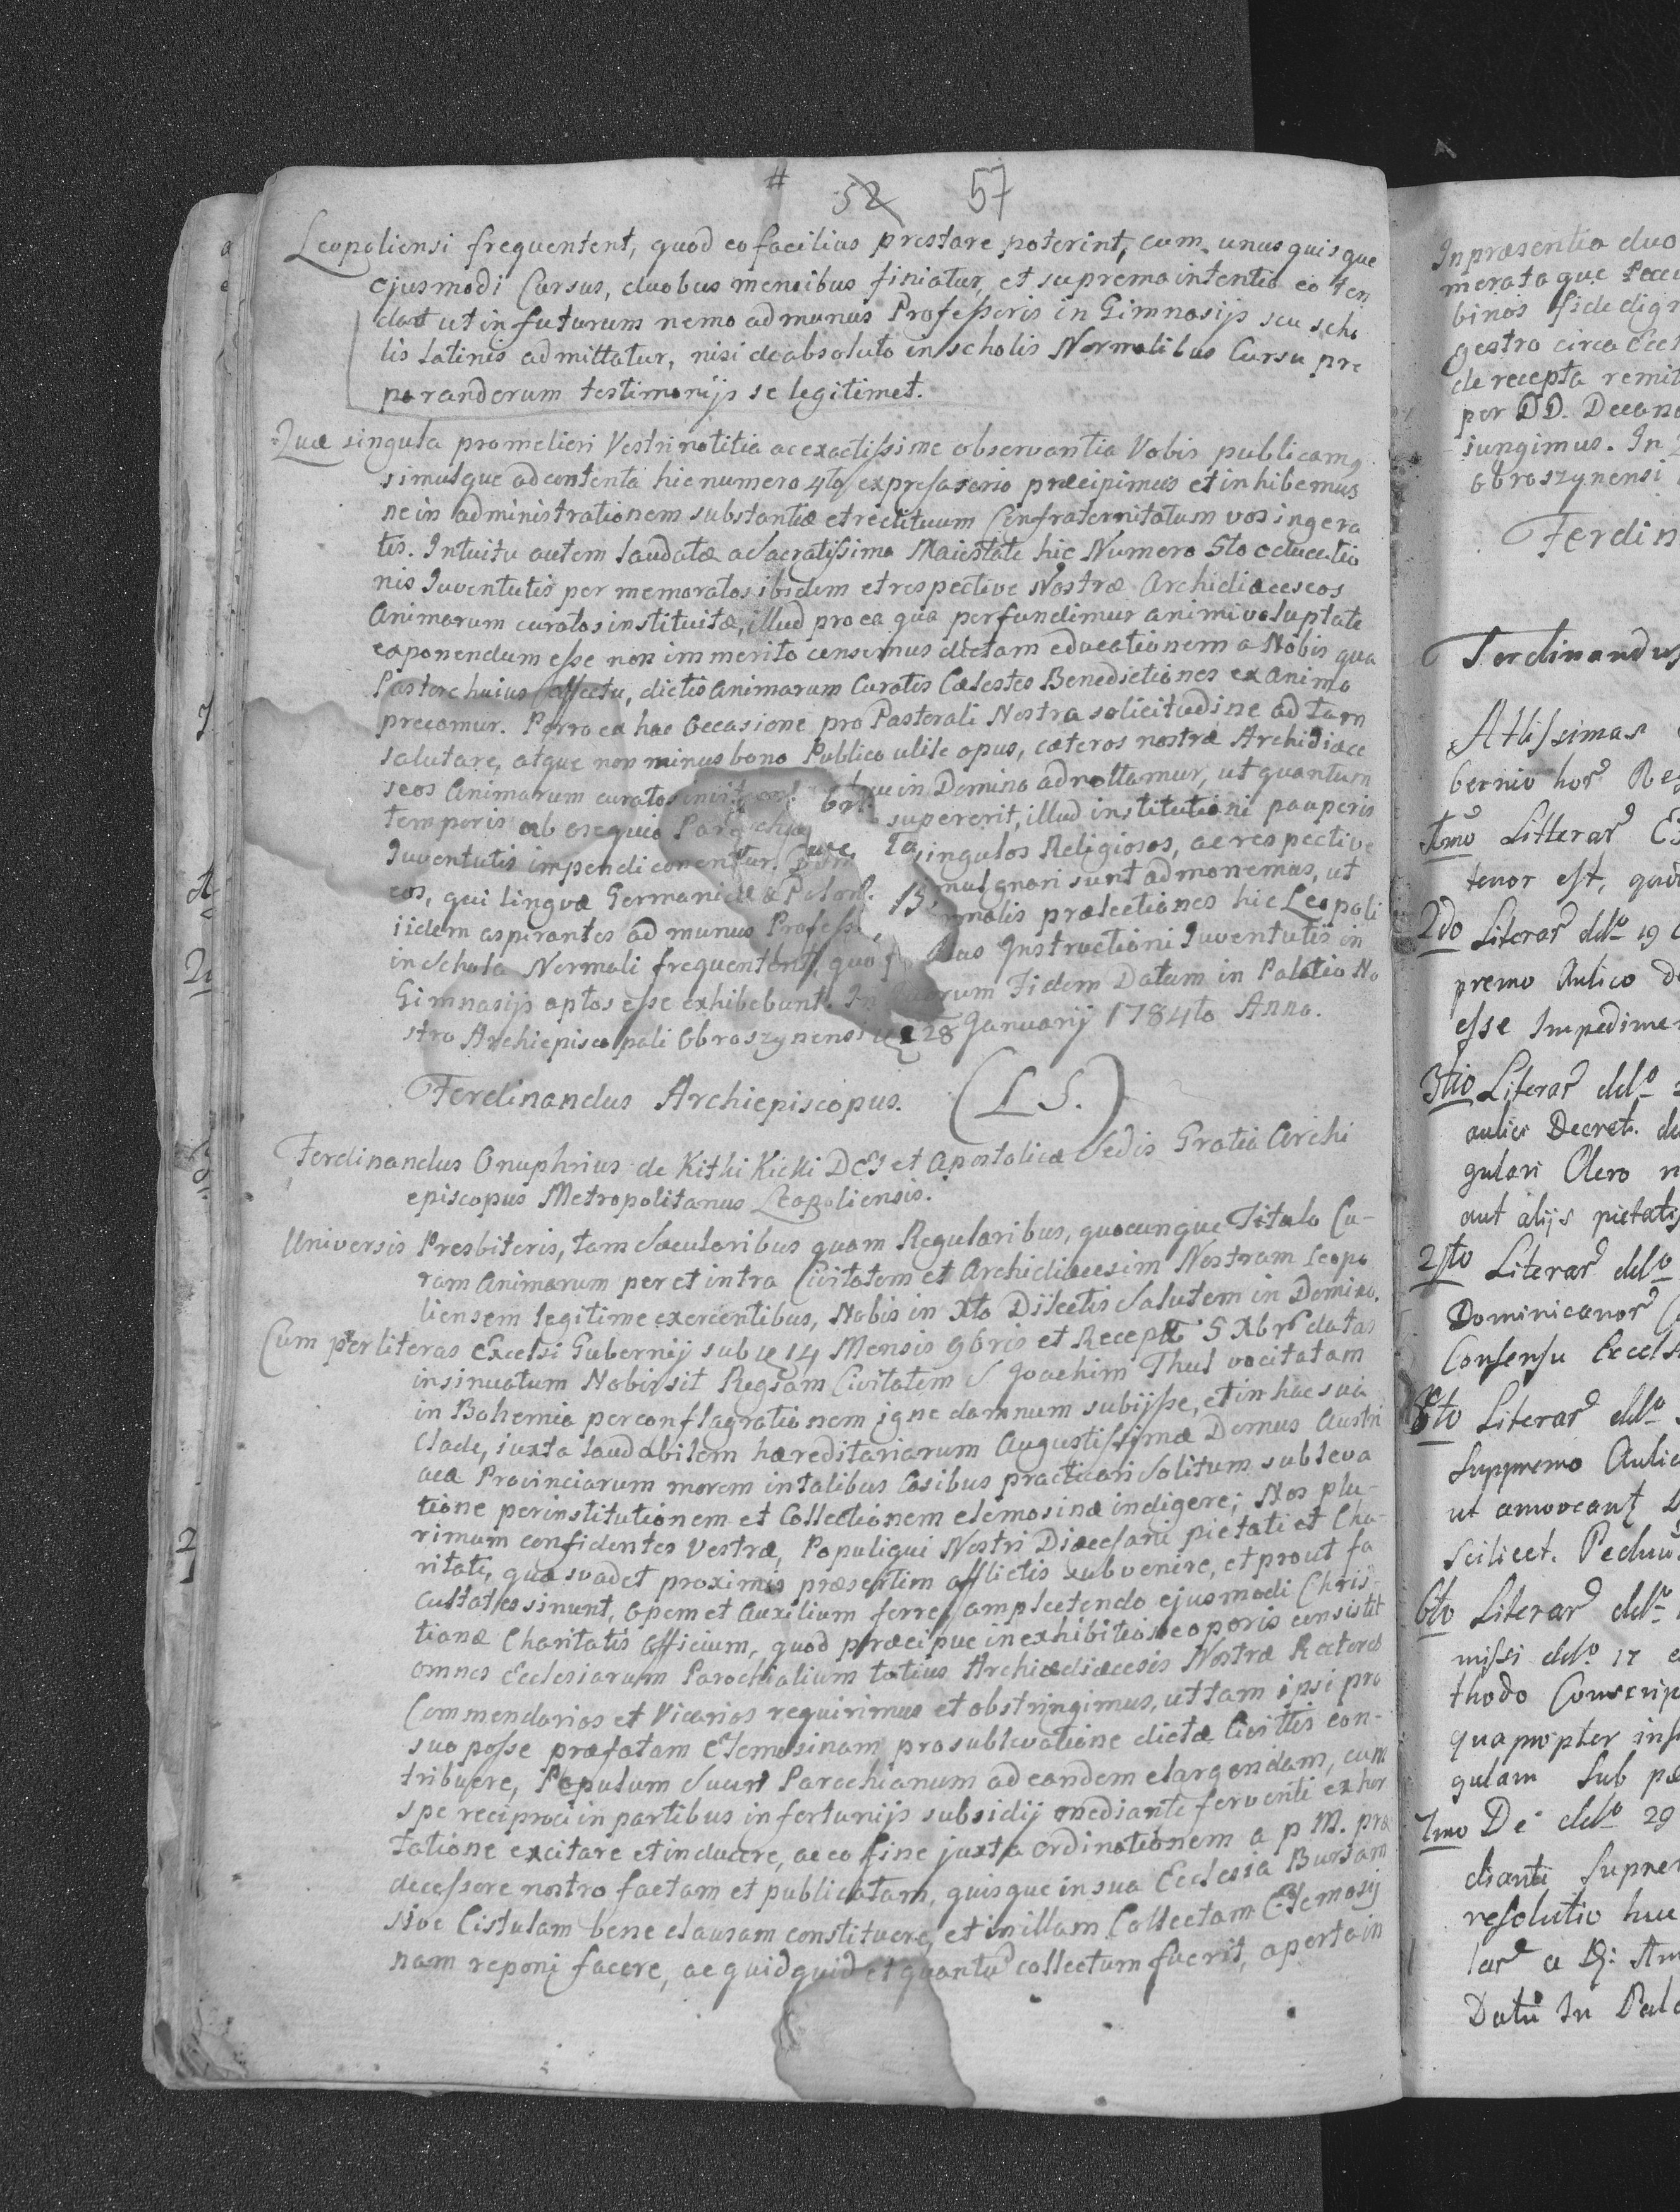 # 52 57
Leopoliensi frequentent, quod eo facilius prestare poterint, cum unus quisque
ejusmodi Cursus, duobus mensibus finiatur, et suprema intentio eo ten
dat ut in futurum nemo ad munus Professoris in Gimnasijs seu scho
lis latinis admittatur, nisi de absoluto in scholis Normalibus Cursu pre
parandorum testimonijs se legitimet.
Quæ singula pro meliori Vestri notitia ac exactissime observantia Vobis publicamq
simulque ad contenta hic numero 4to expressa serio præcipimus et inhibemus
ne in administrationem substantiæ et rectituum Confraternitatum vos ingera
tis. Intuitu autem laudatæ a Sacratissima Maiestate hic Numero 5to educatio
nis Juventutis per memoratos ibidem et respective Nostræ Archidiæceseos
Animarum curatos institutæ, illud pro ea qua perfundimur animi voluptate
exponendum esse non immerito censemus dictam educationem a Nobis qua
Pastore huius affectu, dictis animarum Curatis Cælestes Benedictiones ex animo
precamur. Porro ea hac Occasione pro Pastorali Nostra solicitudine ad tam
salutare, atque non minus bono Publico utile opus, cæteros nostræ Archidiæce
seos Animarum curatos in Domino adhottamur, ut quantum
temporis ab obsequio supererit, illud institutioni pauperis
Juventutis impendi conentur. singulos Religiosos, ac respective
eos, qui linguæ Germanicæ gnari sunt admonemus, ut
iidem aspirantes ad munus prælectiones hic Leopoli
in Schola Normali frequentent, quo Instructioni Juventutis in
Gimnasijs aptos esse exhibebunt. In quorum Fidem Datum in Palatio No
stro Archiepiscopali Obroszynensi 28 Januarij 1784to Anno.
Ferdinandus Archiepiscopus. (L S.)
Ferdinandus Onuphrius de Kithi Kicki DEI et Apostolicæ Sedis Gratia Archi
episcopus Metropolitanus Leopoliensis.
Universis Presbiteris, tam Sæcularibus quam Regularibus, quocunque Titulo Cu-
ram Animarum per et intra Civitatem et Archidiæcesim Nostram Leopo
liensem legitime exercentibus, Nobis in Xto Dilectis Salutem in Domino.
Cum per literas Excelsi Gubernij sub 14 Mensis 9bris et Recept 5 Xbr datas
insinuatum Nobis sit Regiam Civitatem S Joachim Thul vocitatam
in Bohemia per conflagrationem igne damnum subijsse, et in hac sua
Clade, iuxta laudabilem hæreditariarum Augustissimæ Domus Austri
acæ Provinciarum morem in talibus Casibus practicari Solitum subleva
tione per institutionem et Collectionem elemosinæ indigere; Nos plu-
rimum confidentes Vestræ, Populique Nostri Diæcesani pietati et Cha-
ritati, quæ svadet proximis præsertim afflictis subvenire, et prout fa
cultates sinunt, Opem et Auxilium ferre, amplectendo ejusmodi Chris-
tianæ Charitatis Officium, quod præcipue in exhibitione operis consistit
omnes Ecclesiarum Parochialium totius Archidiæcesis Nostræ Rectores
Commendarios et Vicarios requirimus et obstringimus, ut tam ipsi pro
suo posse præfatam Elemosinam pro sublevatione dictæ Civittis con-
tribuere, Populum Suum Parochianum ad eandem elargendam, cum
spe reciproci in partibus infortunijs subsidij mediante ferventi exhor
tatione excitare et inducere, ac eo fine juxta ordinationem a p M. præ
decessore nostro factam et publicatam, quisque in sua Ecclesia Bursam
sive Cistulam bene clausam constituere, et in illam Collectam Elemosij
nam reponi facere, ac quidquid et quantu collectum fuerit, aperta in
In præsentia duo
binos fide
gestro circa
de recepta remit
per DD. Decano
jungimus. In
Obroszynensi
Ferdin
Ferdinandus
Altissimas
bernio hor Reg
1mo Litterar
tenor est,
2do Literar ddo 19
premo Aulico
esse Impedime
3tio Literar ddo
aulici Decret.
gulari Clero
aut alijs pietatis
Literar ddo
Dominicanor
Consensu Excels
5to Literar ddo
Suppremo Aulic
ut amoveant
Scilicet.
6to Literar ddo
missi ddo 17
thodo Conscrip
quapropter
gulam Sub
7mo De ddo 29
resolutio
Datu In Pala